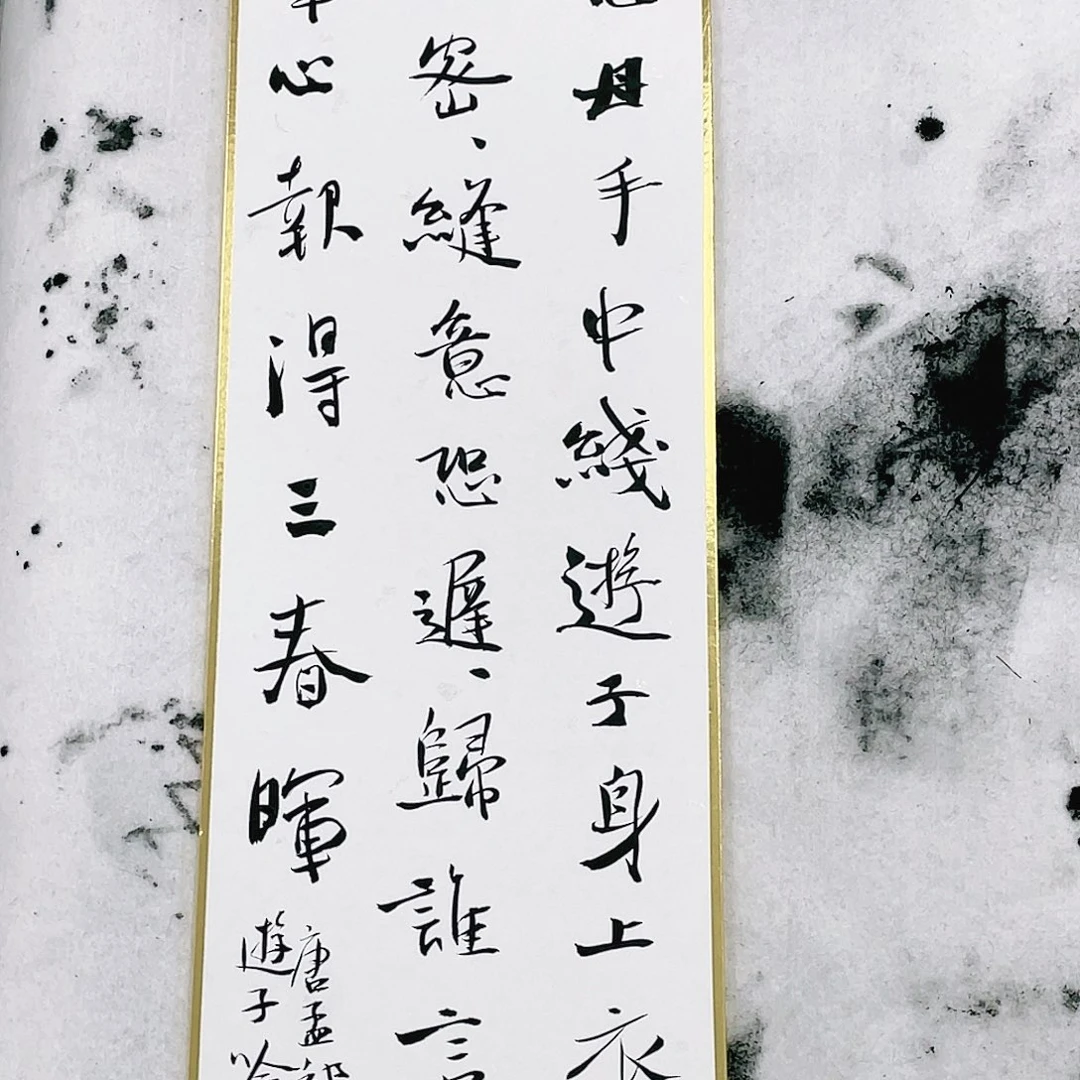 母手中綫遊子身上衣
密、縫意恐遲、歸誰言
心報得三春暉
唐孟郊
遊子吟